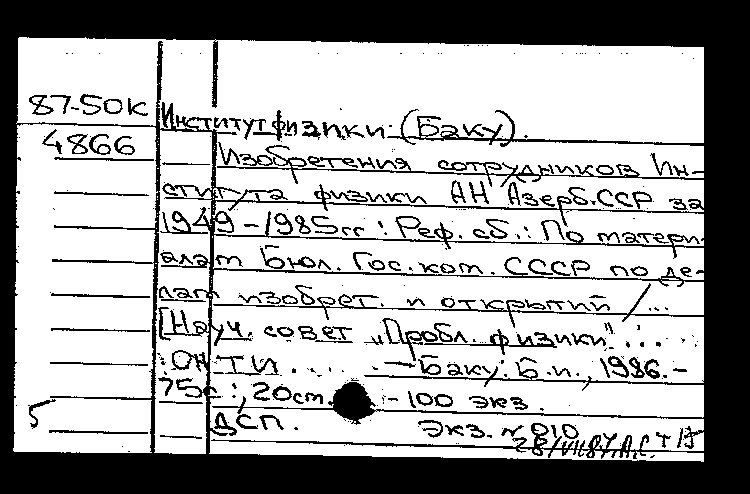 87-50К
Институт физики (Баку).
4866
Изобретения сотрудников Ин-
ститута физики АН Азерб.ССР за
1949-1985гг : Реф. сб. : По матери-
алам Бюл. Гос. ком. СССР по де-
лам изобрет. и открытий / ...
[Науч. совет „Пробл. физики" ...
: ОНТИ ..... — Баку: Б.и., 1986.-
75с : , 20см. - 100 экз.
5
ДСП. Экз. №010
28/VII87.